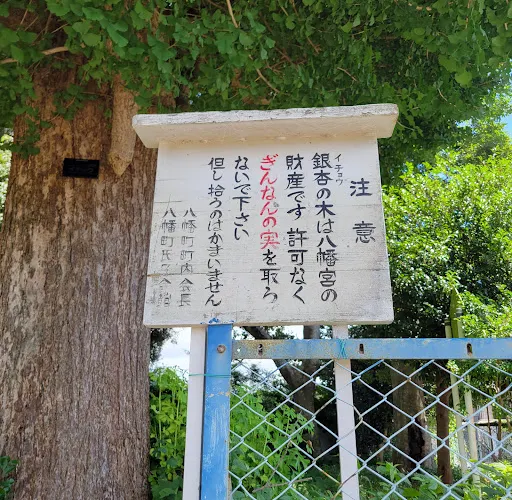 注意
イチョウ
銀杏の木は八幡宮の
財産です 許可なく
ぎんなんの実を取ら
ないで下さい
但し拾うのはかまいません
八幡町町内会長
八幡町氏子会